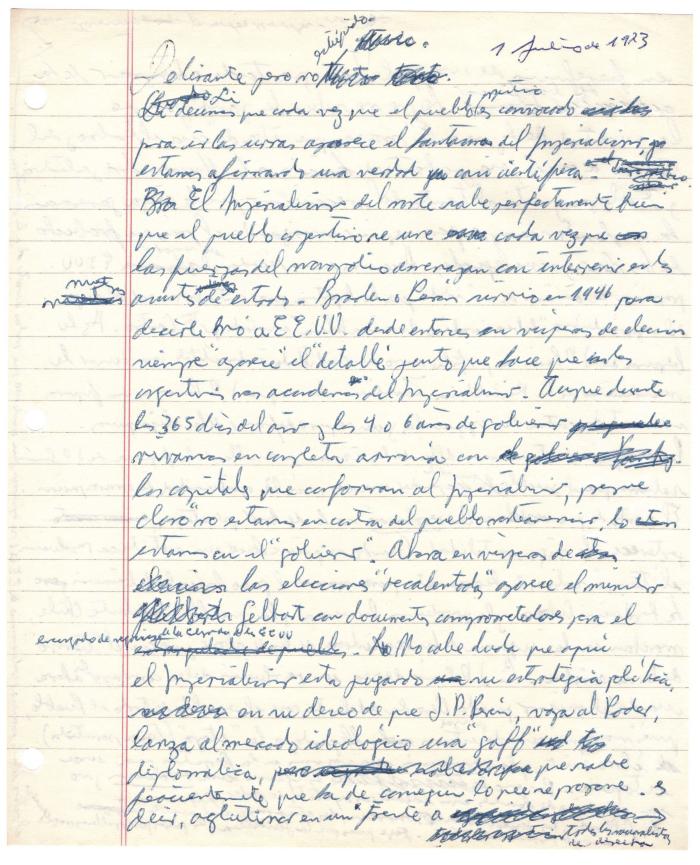 estúpido.
1 Julio de 1973
Delirante pero no
Si decimos que cada vez que el pueblo es convocado
para ir a las urnas aparece el fantasma del Imperialismo,
estamos afirmando una verdad ya casi científica.
El Imperialismo del norte sabe perfectamente bien
que el pueblo argentino se une cada vez que
las fuerzas del monopolio amenazan con intervenir en los
asuntos de estado. Braden o Perón sirvió en 1946 para
decirle No a EE.UU. desde entonces en vísperas de elección
siempre "aparece" el "detalle" justo que hace que los
argentinos nos acordemos del Imperialismo. Aunque durante
los 365 días del año y los 4 o 6 años de gobierno
vivamos en completa armonía con
los capitales que conforman al Imperialismo, porque
claro "no estamos en contra del pueblo norteamericano, lo
estamos en el "gobierno". Ahora en vísperas de
las elecciones "recalentadas" aparece el ministro
Gelbart con documentos comprometedores para el
encargado de negocios de EEUU
No cabe duda que aquí
el Imperialismo esta jugando su estrategia política,
en su deseo de que J.P. Perón, vaya al Poder,
lanza al mercado ideologico una "gaff"
diplomatica, que sabe
que ha de conseguir lo que se propone. es
decir, aglutinar en un frente a
todos los nacionalistas
de derecha